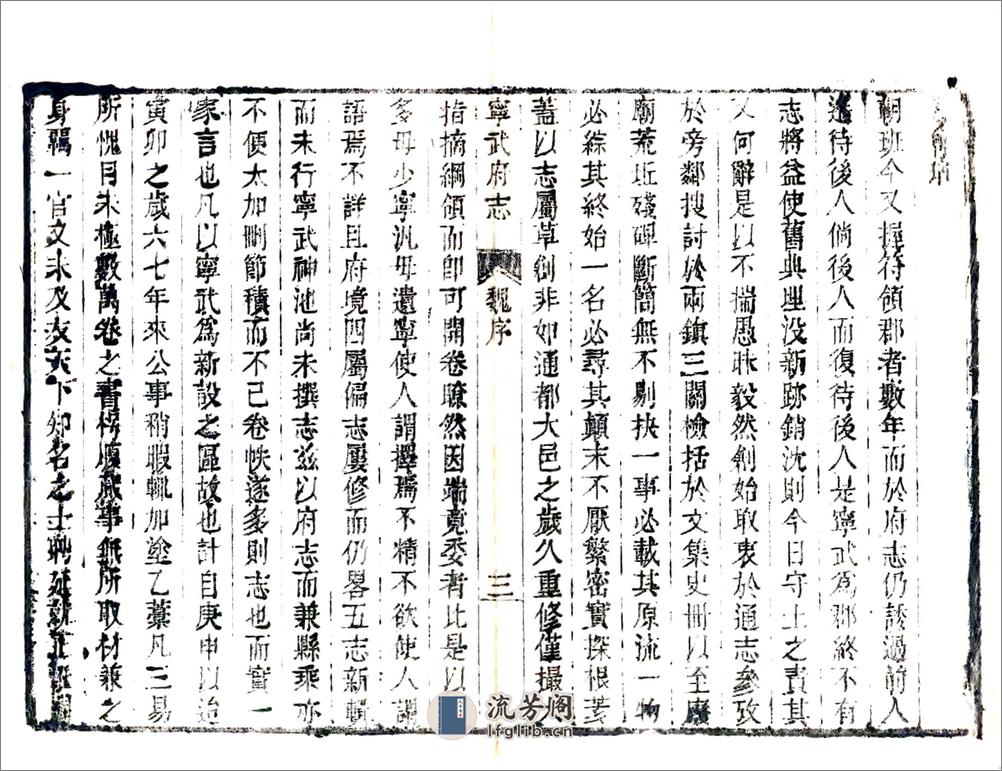 朝班今又握符領郡者數年而於府志仍諉過前人
遠待後人倘後人而復待後人是寧武為郡終不有
志將益使舊典埋没新跡銷沈則今日守土之責其
又何辭是以不揣愚昧毅然創始取衷於通志參攷
於旁鄰搜討於兩鎮三關檢括於文集史冊以至廢
廟荒坵殘碑斷簡無不剔抉一事必載其原流一物
必綜其終始一名必尋其顛末不厭繁密實探根荄
蓋以志屬草創非如通都大邑之歲久重修僅撮
寧武府志 魏序 三
指摘綱領而即可開卷瞭然因端竟委者比是以
多毋少寧汎毋遺寧使人謂擇焉不精不欲使人謂
語焉不詳且府境四屬偏志屢修而仍畧五志新輯
而未行寧武神池尚未撰志兹以府志而兼縣乘亦
不便太加刪節積而不已卷帙遂多則志也而實一
家言也凡以寧武為新設之區故也計自庚申以迨
寅卯之歲六七年來公事稍暇輒加塗乙藁凡三易
所愧目未極數萬卷之書
事無所取材兼之
身羈一官文未及友天下知名之士聘延就正